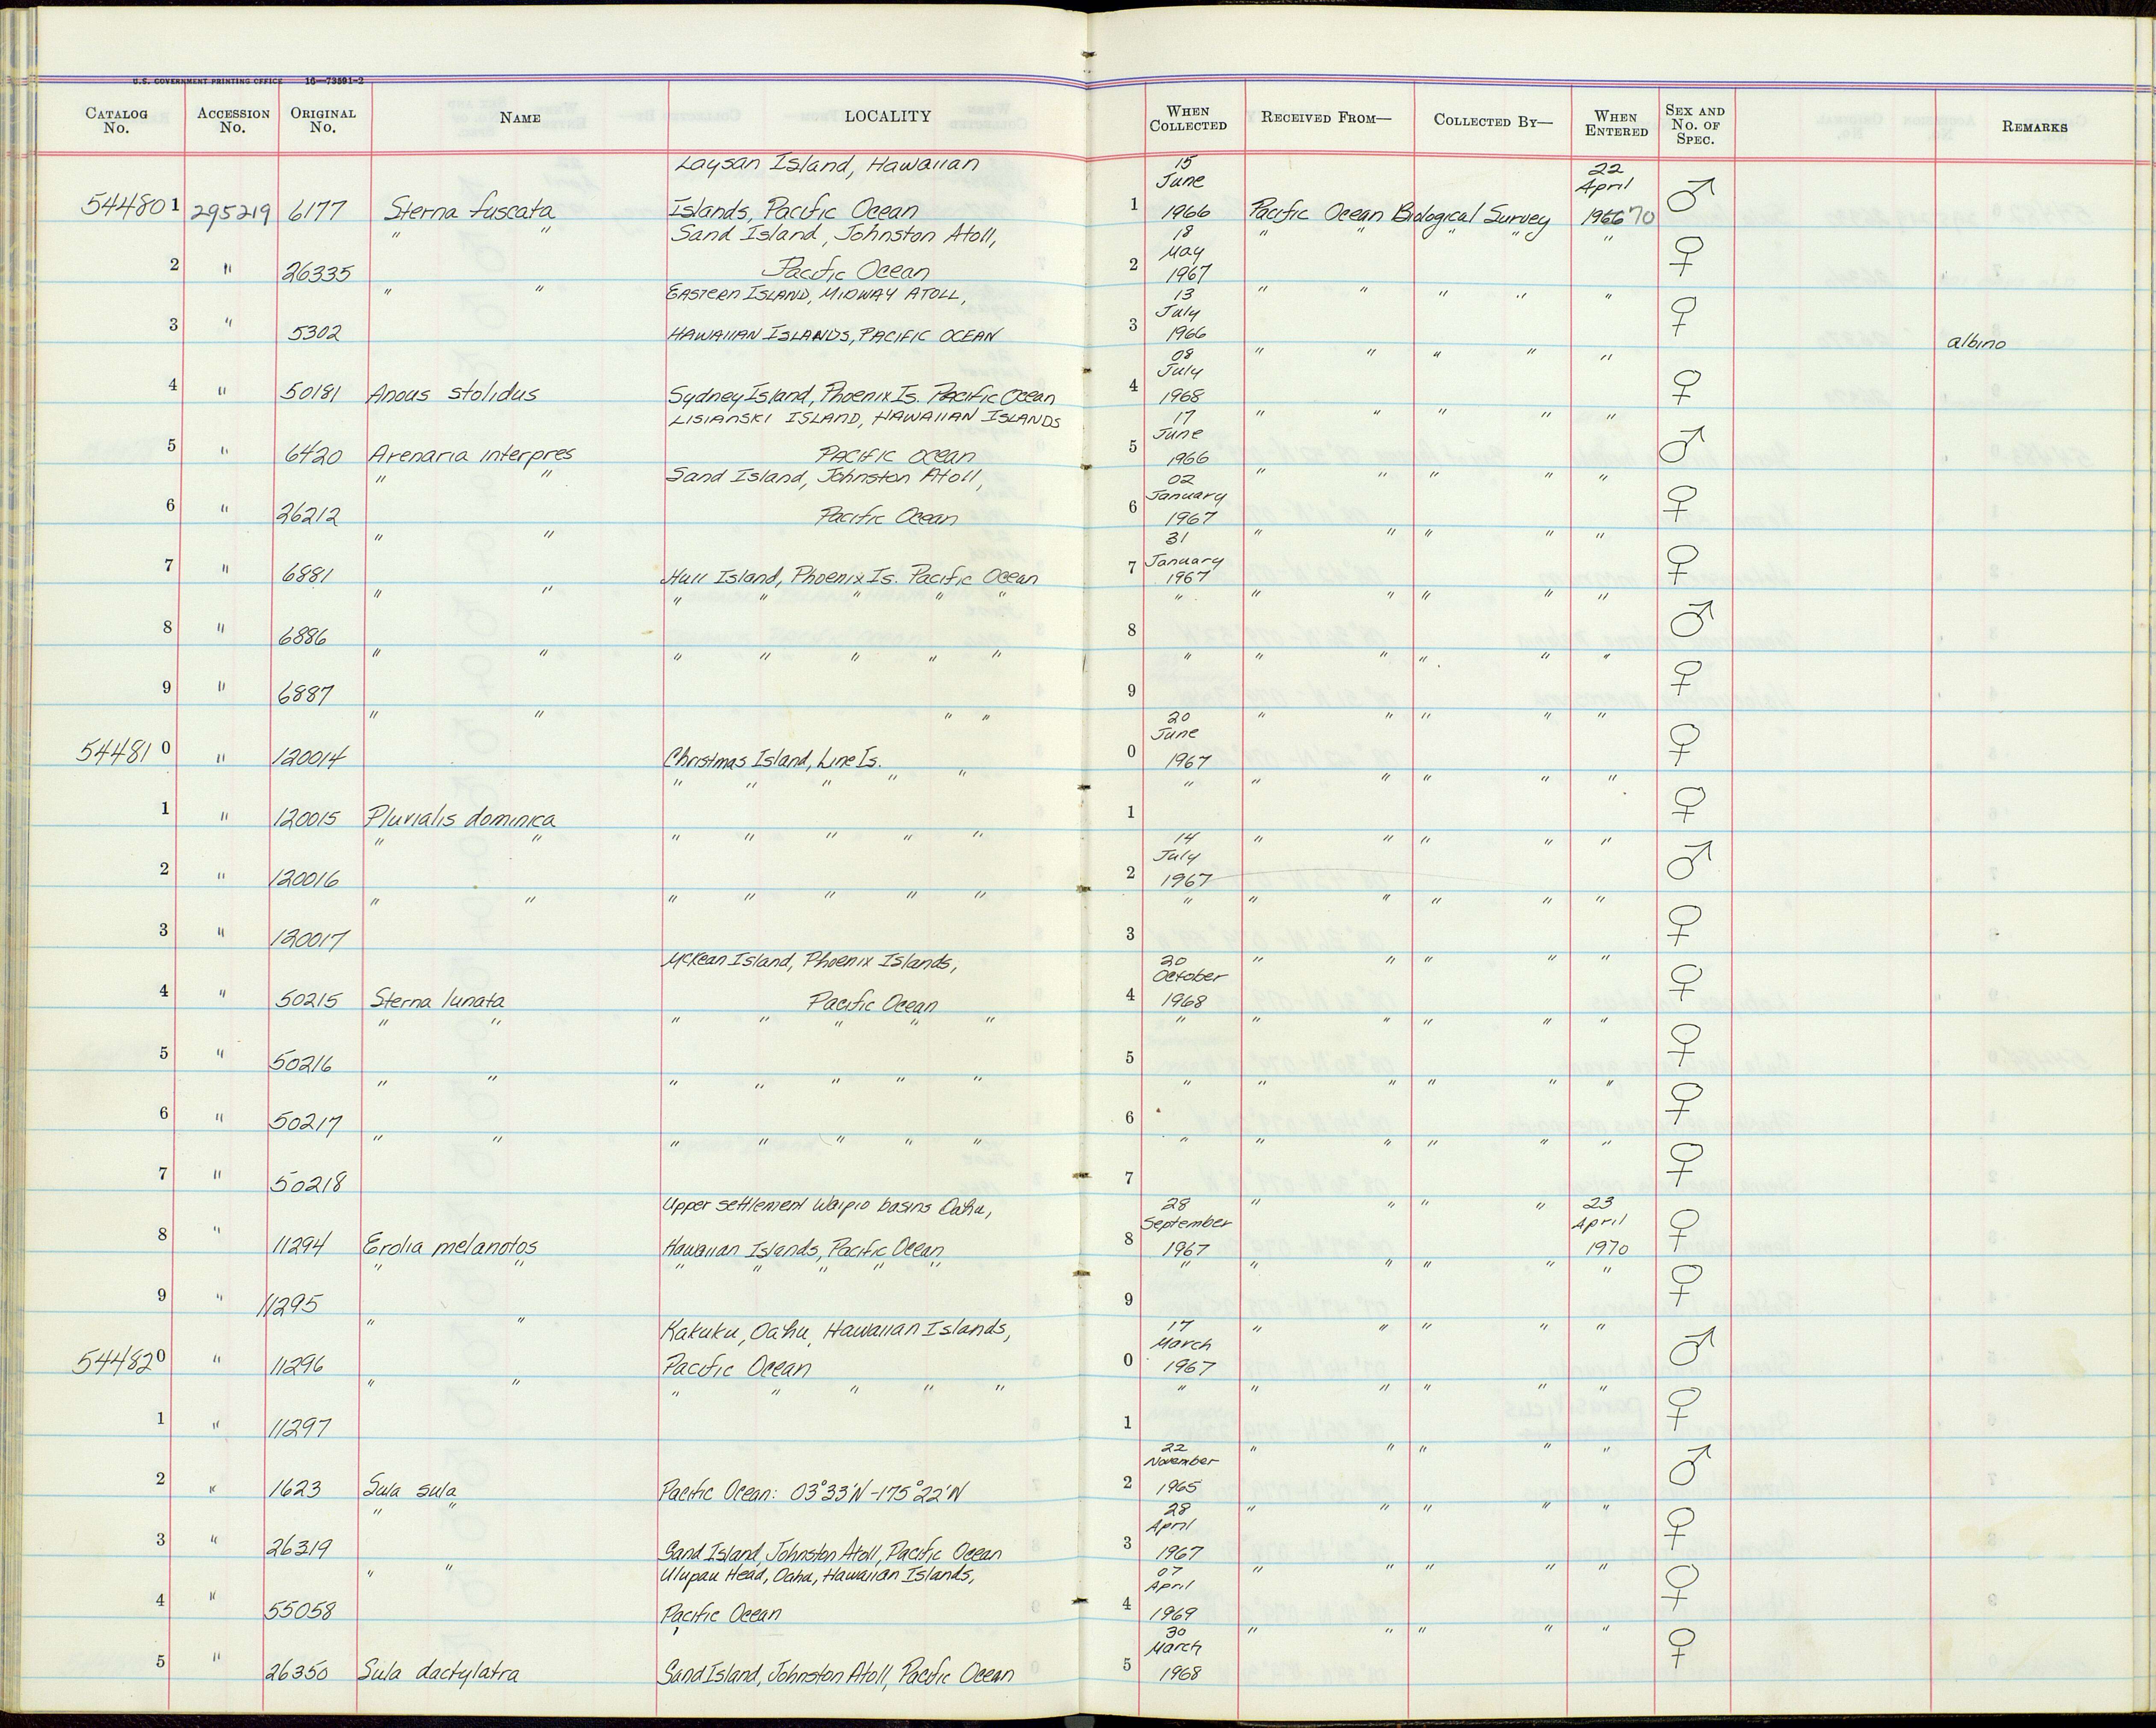 U.S. GOVERNMENT PRINTING OFFICE 16—73591-2
CATALOG No. ACCESSION No. ORIGINAL No. NAME LOCALITY WHEN COLLECTED RECEIVED FROM— COLLECTED BY— WHEN ENTERED SEX AND No. OF SPEC. REMARKS
Laysan Island, Hawaiian 15 June 22 April
544801 295219 6177 Sterna fuscata Islands, Pacific Ocean 1 1966 Pacific Ocean Biological Survey 196670 ♂
" " Sand Island, Johnston Atoll, 18 May " " " " "
2 " 26335 Pacific Ocean 2 1967 ♀
" " EASTERN ISLAND, MIDWAY ATOLL, 13 July " " " " "
3 " 5302 HAWAIIAN ISLANDS, PACIFIC OCEAN 3 1966 ♀ albino
08 July " " " " "
4 " 50181 Anous stolidus Sydney Island, Phoenix Is. Pacific Ocean 4 1968 ♀
LISIANSKI ISLAND, HAWAIIAN ISLANDS 17 June " " " " "
5 " 6420 Arenaria interpres PACIFIC OCEAN 5 1966 ♂
" " Sand Island, Johnston Atoll, 02 January " " " " "
6 " 26212 Pacific Ocean 6 1967 ♀
" " 31 January " " " " "
7 " 6881 Hull Island, Phoenix Is. Pacific Ocean 7 1967 ♀
" " " " " " " " " " " " "
8 " 6886 8 ♂
" " " " " " " " " " " " "
9 " 6887 9 ♀
" " " " 20 June " " " " "
544810 " 120014 Christmas Island, Line Is. 0 1967 ♀
" " " " " " " " " " "
1 " 120015 Pluvialis dominica 1 ♀
" " " " " " " 14 July " " " " "
2 " 120016 2 1967 ♂
" " " " " " " " " " " " "
3 " 120017 3 ♀
McKean Island, Phoenix Islands, 20 October " " " " "
4 " 50215 Sterna lunata Pacific Ocean 4 1968 ♀
" " " " " " " " " " " " "
5 " 50216 5 ♀
" " " " " " " " " " " " "
6 " 50217 6 ♀
" " " " " " " " " " " " "
7 " 50218 7 ♀
Upper settlement Waipio basins Oahu, 28 September " " " " 23 April
8 " 11294 Erolia melanotos Hawaiian Islands, Pacific Ocean 8 1967 1970 ♀
" " " " " " " " " " " " "
9 " 11295 9 ♀
" " Kakuku, Oahu, Hawaiian Islands, 17 March " " " " "
544820 " 11296 Pacific Ocean 0 1967 ♂
" " " " " " " " " " " " "
1 " 11297 1 ♀
22 November " " " " "
2 " 1623 Sula sula Pacific Ocean: 03°33'N-175°22'N 2 1965 ♂
" " 28 April " " " " "
3 " 26319 Sand Island, Johnston Atoll, Pacific Ocean 3 1967 ♀
" " Ulupau Head, Oahu, Hawaiian Islands, 07 April " " " " "
4 " 55058 Pacific Ocean 4 1969 ♀
30 March " " " " "
5 " 26350 Sula dactylatra Sand Island, Johnston Atoll, Pacific Ocean 5 1968 ♀